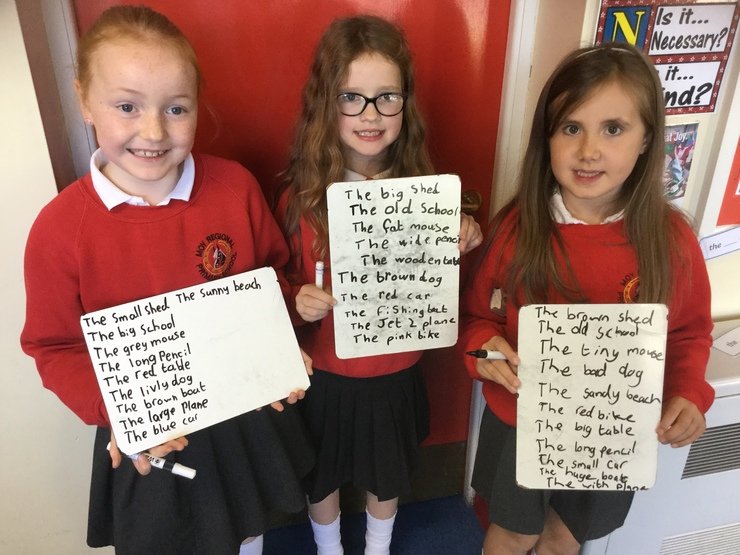 The small shed The sunny beach
The big school
The grey mouse
The long Pencil
The red table
The livly dog
The brown boat
The large Plane
The blue car
The big shed
The old School
The fat mouse
The wide pencil
The wooden table
The brown dog
The red car
The fishing boat
The Jet 2 plane
The pink bike
The brown shed
The old school
The tiny mouse
The bad dog
The sandy beach
The red bike
The big table
The long pencil
The small car
The huge boat
The with plane
MOY REGIONAL
N
Is it...
Necessary?
it...
nd?
the